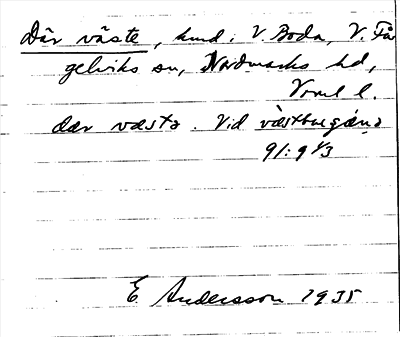 Där väste, hmd. V. Boda, V. Få
gelviks sn, Nordmarks hd,
Vrml l.
dar væsta. Vid västbugána
91: 9 43
E Andersson 1935